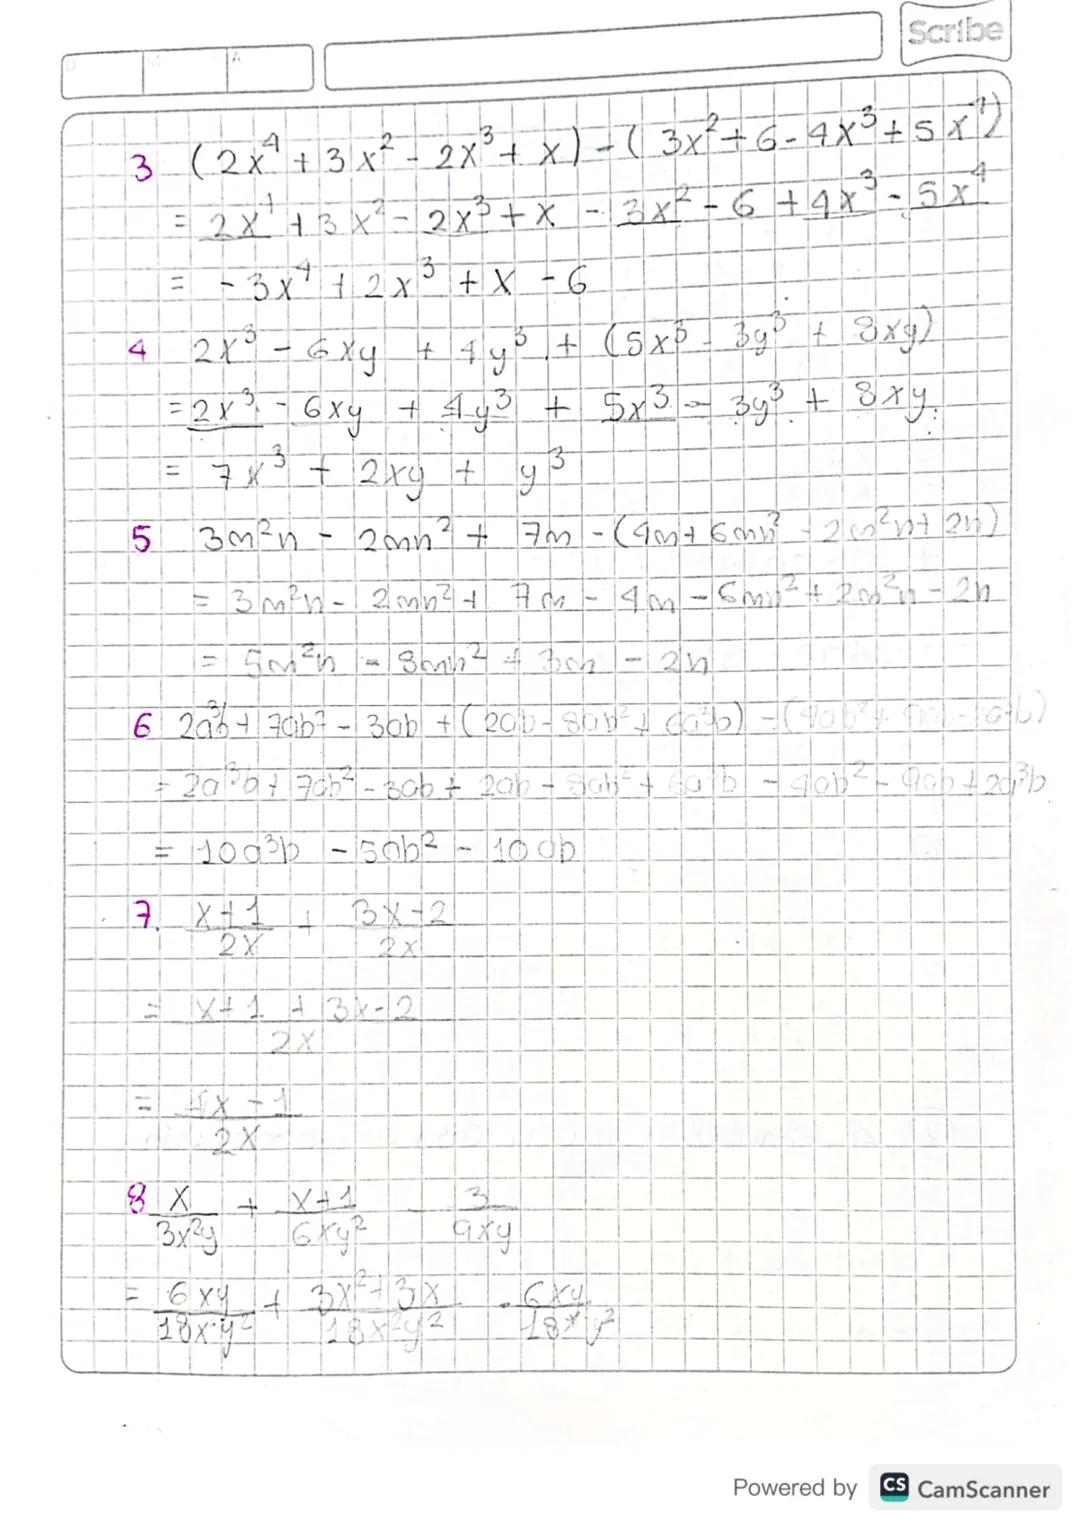 Scribe
D M A
3 (2x⁴ + 3x² - 2x³ + x) - (3x² + 6 - 4x³ + 5x⁴)
= 2x⁴ + 3x² - 2x³ + x - 3x² - 6 + 4x³ - 5x⁴
= -3x⁴ + 2x³ + x - 6
4 2x³ - 6xy + 4y³ + (5x³ - 3y³ + 8xy)
= 2x³ - 6xy + 4y³ + 5x³ - 3y³ + 8xy
= 7x³ + 2xy + y³
5 3m²n - 2mn² + 7m - (4m + 6mn² - 2m²n + 2n)
= 3m²n - 2mn² + 7m - 4m - 6mn² + 2m²n - 2n
= 5m²n - 8mn² + 3m - 2n
6 2a³b + 7ab² - 3ab + (2ab - 8ab² + 6a³b) - (4ab² + 9ab - 2a³b)
= 2a³b + 7ab² - 3ab + 2ab - 8ab² + 6a³b - 4ab² - 9ab + 2a³b
= 10a³b - 5ab² - 10ab
7. x+1 + 3x-2
2x 2x
= x+1 + 3x-2
2x
= 4x - 1
2x
8 x + x+1 - 3
3x²y 6xy² 9xy
= 6xy + 3x²+3x - 6xy
18x²y² 18x²y² 18x²y²
Powered by CS CamScanner